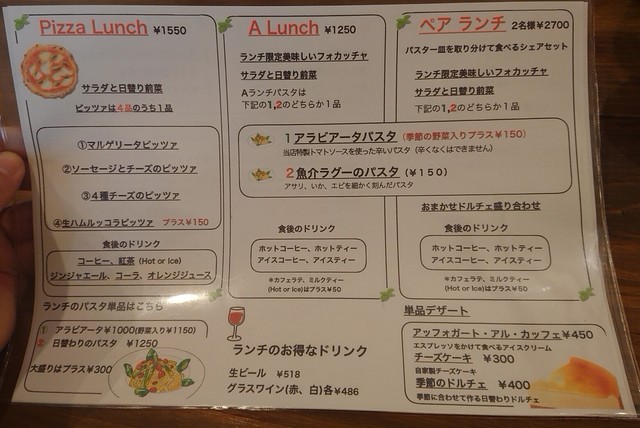 Pizza Lunch ¥1550
サラダと日替り前菜
ピッツァは4品のうち1品
①マルゲリータピッツァ
②ソーセージとチーズのピッツァ
③4種チーズのピッツァ
④生ハムルッコラピッツァ プラス¥150
食後のドリンク
コーヒー、紅茶 (Hot or Ice)
ジンジャエール、コーラ、オレンジジュース
ランチのパスタ単品はこちら
1 アラビアータ¥1000(野菜入り¥1150)
2 日替わりのパスタ ¥1250
大盛りはプラス¥300
A Lunch ¥1250
ランチ限定美味しいフォカッチャ
サラダと日替り前菜
Aランチパスタは
下記の1,2のどちらか1品
ペア ランチ 2名様¥2700
パスタ一皿を取り分けて食べるシェアセット
ランチ限定美味しいフォカッチャ
サラダと日替り前菜
下記の1,2のどちらか1品
1 アラビアータパスタ (季節の野菜入りプラス¥150)
当店特製トマトソースを使った辛いパスタ (辛くなくはできません)
2 魚介ラグーのパスタ (¥150)
アサリ、いか、エビを細かく刻んだパスタ
食後のドリンク
ホットコーヒー、ホットティー
アイスコーヒー、アイスティー
※カフェラテ、ミルクティー
(Hot or Ice)はプラス¥50
おまかせドルチェ盛り合わせ
食後のドリンク
ホットコーヒー、ホットティー
アイスコーヒー、アイスティー
※カフェラテ、ミルクティー
(Hot or Ice)はプラス¥50
ランチのお得なドリンク
生ビール ¥518
グラスワイン(赤、白)各¥486
単品デザート
アッフォガート・アル・カッフェ¥450
エスプレッソをかけて食べるアイスクリーム
チーズケーキ ¥300
自家製チーズケーキ
季節のドルチェ ¥400
季節に合わせて作る日替わりドルチェ